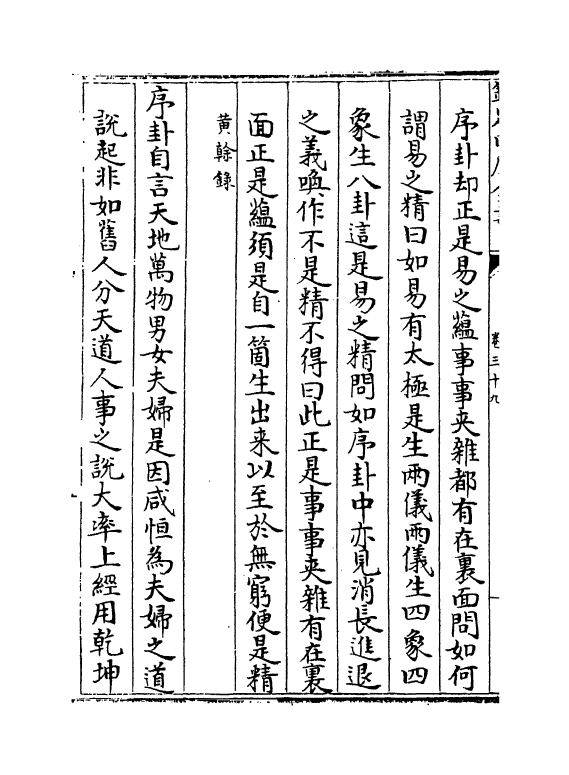 卷三十九
序卦却正是易之蘊事事夾雜都有在裏面問如何
謂易之精曰如易有太極是生兩儀兩儀生四象四
象生八卦這是易之精問如序卦中亦見消長進退
之義喚作不是精不得曰此正是事事夾雜有在裏
面正是蘊須是自一箇生出来以至於無窮便是精
黄榦錄
序卦自言天地萬物男女夫婦是因咸恒為夫婦之道
說起非如舊人分天道人事之說大率上經用乾坤